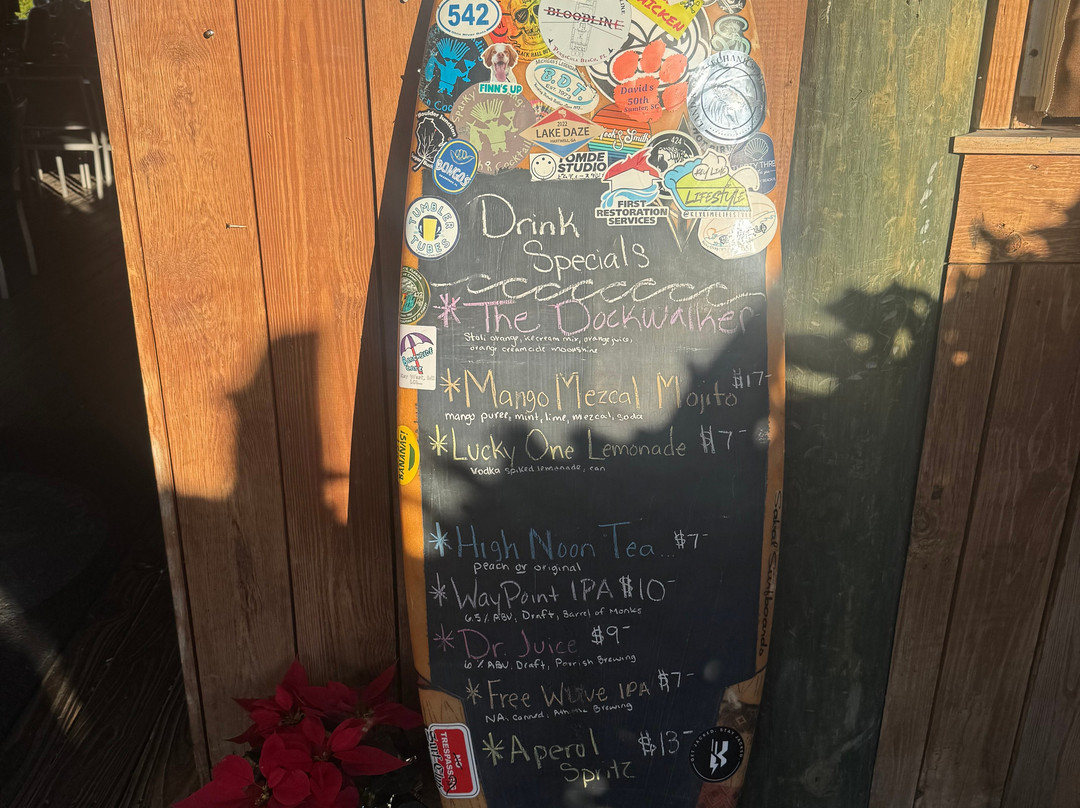 542
BLOODLINE
CHICKEN
FINN'S UP
B.D.T.
EST. 1973
David's
50th
Sumter, SC
2022
LAKE DAZE
HARTWELL, GA
BONGOS
TOMDE
STUDIO
FIRST
RESTORATION
SERVICES
KEY LIME
LIFESTYLE
@KEYLIMELIFESTYLE
TUMBLER
TUBES
Drink
Specials
* The Dockwalker
Stoli orange, icecream mix, orange juice,
orange creamcicle moonshine
* Mango Mezcal Mojito $17-
mango puree, mint, lime, mezcal, soda
* Lucky One Lemonade $7-
Vodka spiked lemonade, can
BANANAS!
* High Noon Tea... $7-
peach or original
* WayPoint IPA $10-
6.5% ABV, Draft, Barrel of Monks
* Dr. Juice $9-
6% ABV, Draft, Parrish Brewing
* Free Wave IPA $7-
NA, Canned, Athletic Brewing
* Aperol $13-
Spritz
NO
TRESPASSING